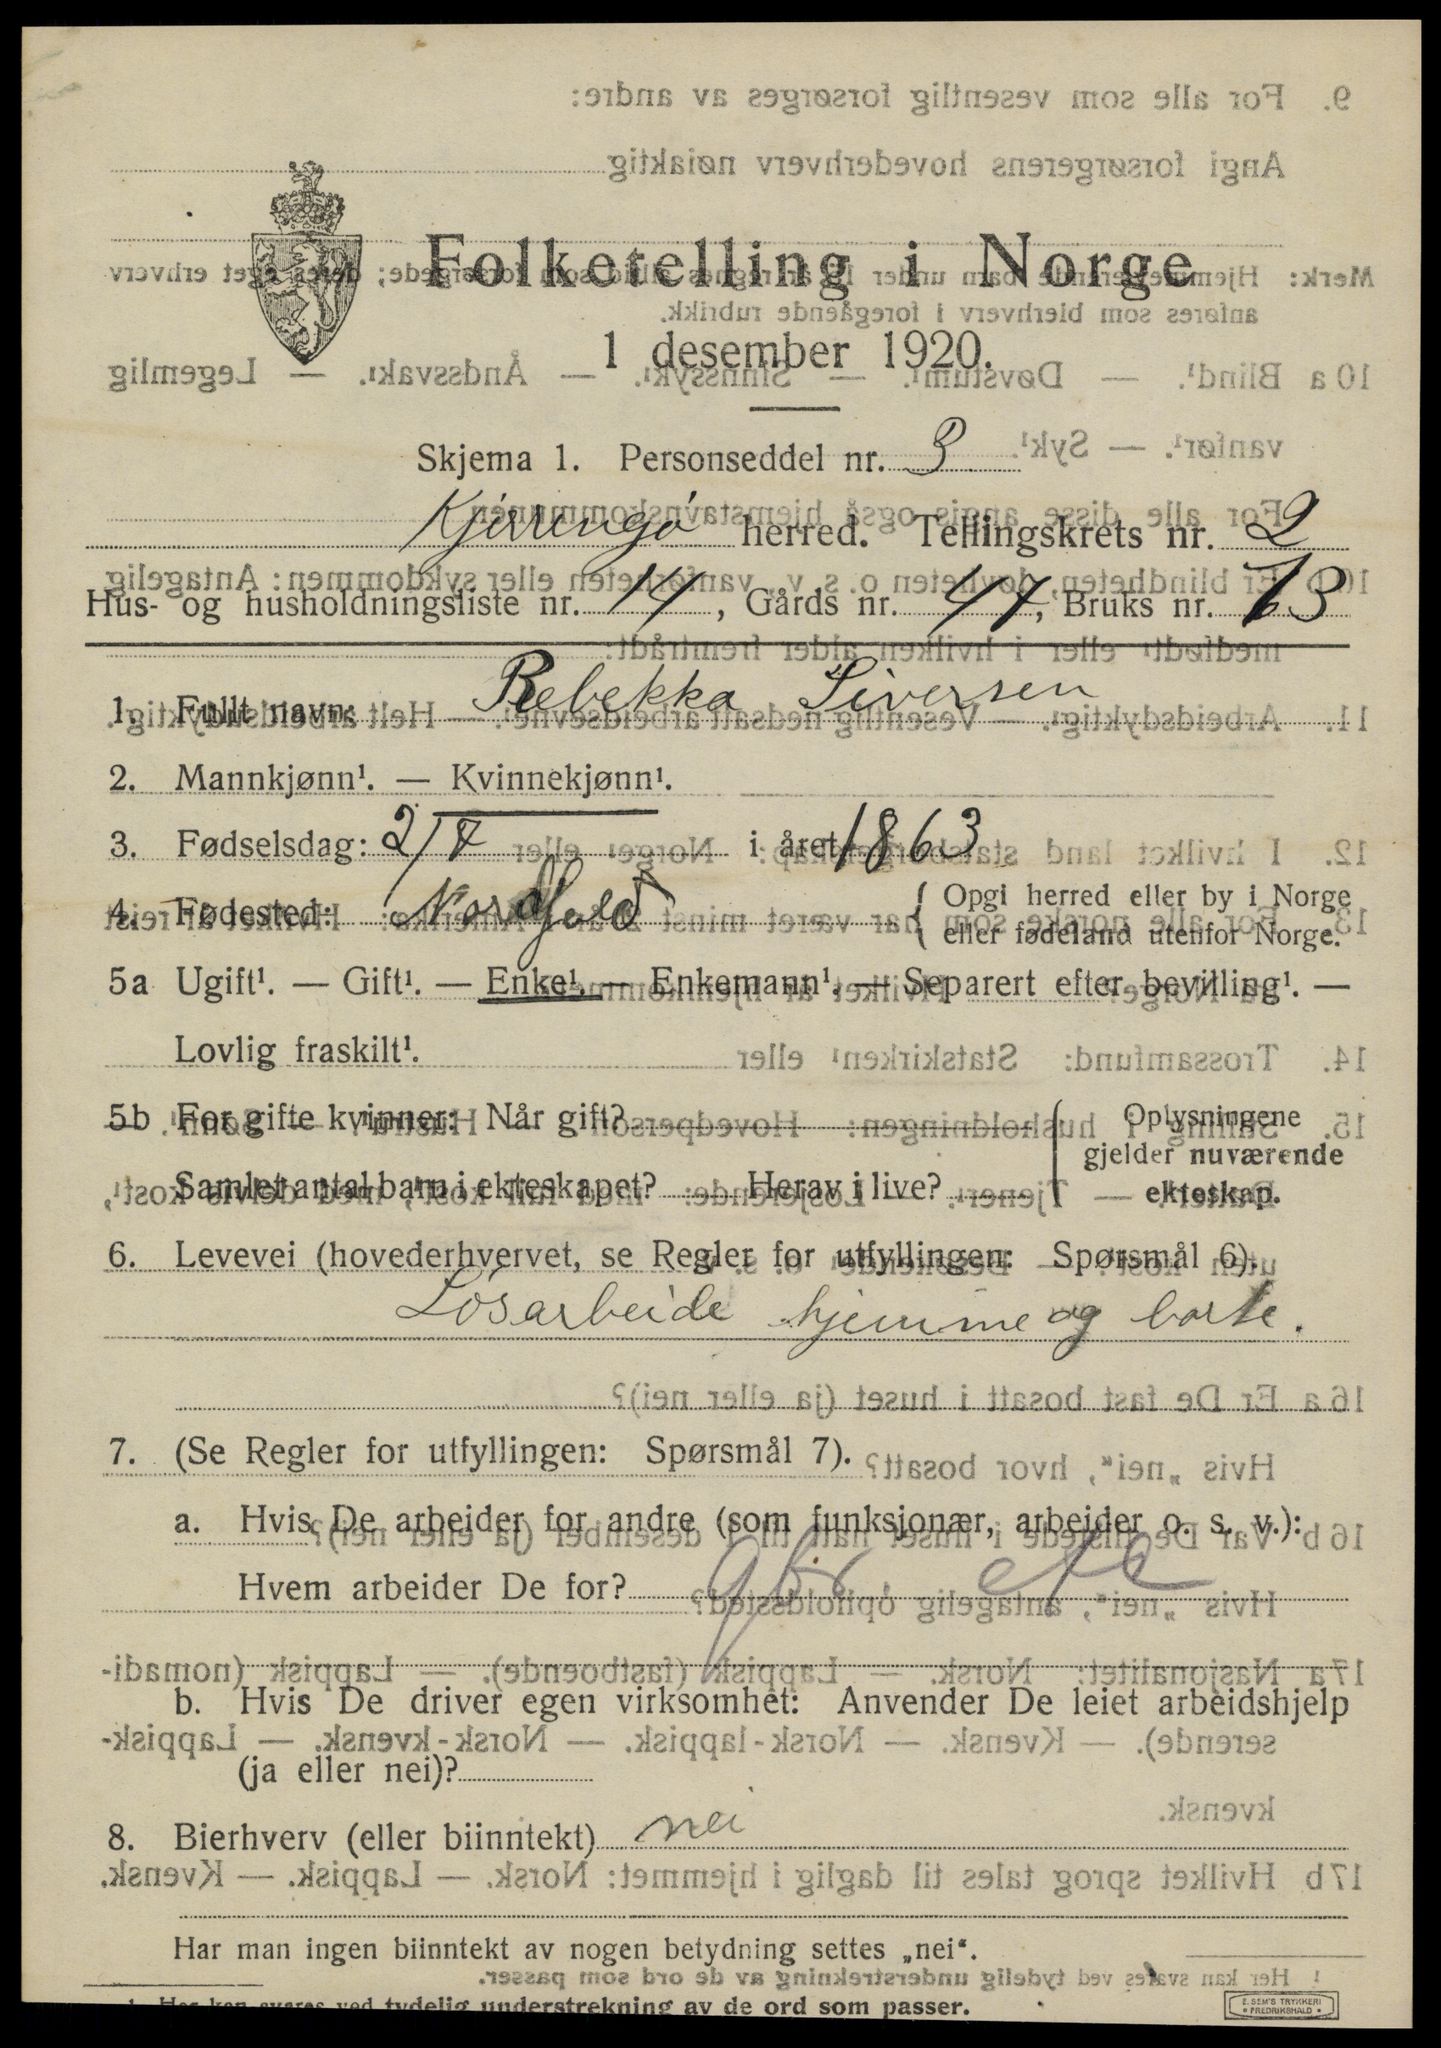 Folketelling i Norge
1 desember 1920.
Skjema 1. Personseddel nr. 3
Kjerringø herred. Tellingskrets nr. 2
Hus- og husholdningsliste nr. 14, Gårds nr. 47, Bruks nr. 13
1. Fullt navn: Rebekka Siversen
2. Mannkjønn¹. — Kvinnekjønn¹.
3. Fødselsdag: 2/7 i året 1863
4. Fødested: Nordfold { Opgi herred eller by i Norge
eller fødeland utenfor Norge.
5a Ugift¹. — Gift¹. — Enke¹. — Enkemann¹. — Separert efter bevilling¹. —
Lovlig fraskilt¹.
5b For gifte kvinner: Når gift? Oplysningene
gjelder nuværende
Samlet antal barn i ekteskapet? Herav i live? ekteskap.
6. Levevei (hovederhvervet, se Regler for utfyllingen: Spørsmål 6).
Løsarbeide hjemme og borte.
7. (Se Regler for utfyllingen: Spørsmål 7).
a. Hvis De arbeider for andre (som funksjonær, arbeider o. s. v.):
Hvem arbeider De for?
b. Hvis De driver egen virksomhet: Anvender De leiet arbeidshjelp
(ja eller nei)?
8. Bierhverv (eller biinntekt) nei
Har man ingen biinntekt av nogen betydning settes „nei“.
¹ Her kan svares ved tydelig understrekning av de ord som passer.
E. SEM'S TRYKKERI
FREDRIKSHALD